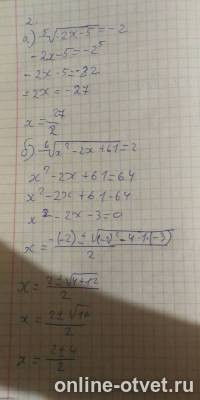 2
а) ⁵√-2x-5 = -2
-2x-5 = -2⁵
-2x-5 = -32
-2x = -27
x = 27/2
б) ⁶√x²-2x+61 = 2
x²-2x+61=64
x²-2x+61-64
x²-2x-3=0
x = -(-2)±√(-2)²-4·1·(-3)/2
x = 2±√4+12/2
x = 2±√16/2
x = 2±4/2
online-otvet.ru